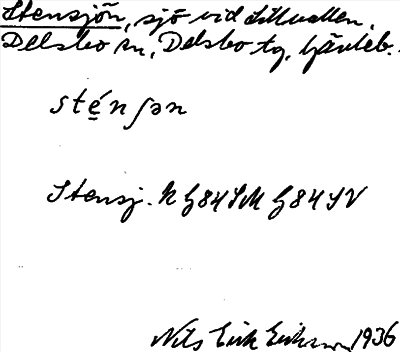 Stensjön, sjö vid Lillvallen,
Delsbo sn, Delsbo tg, Gävleb.
sténʃən
Stensj. K G84SM G84SV
Nils Erik Eriksson 1936